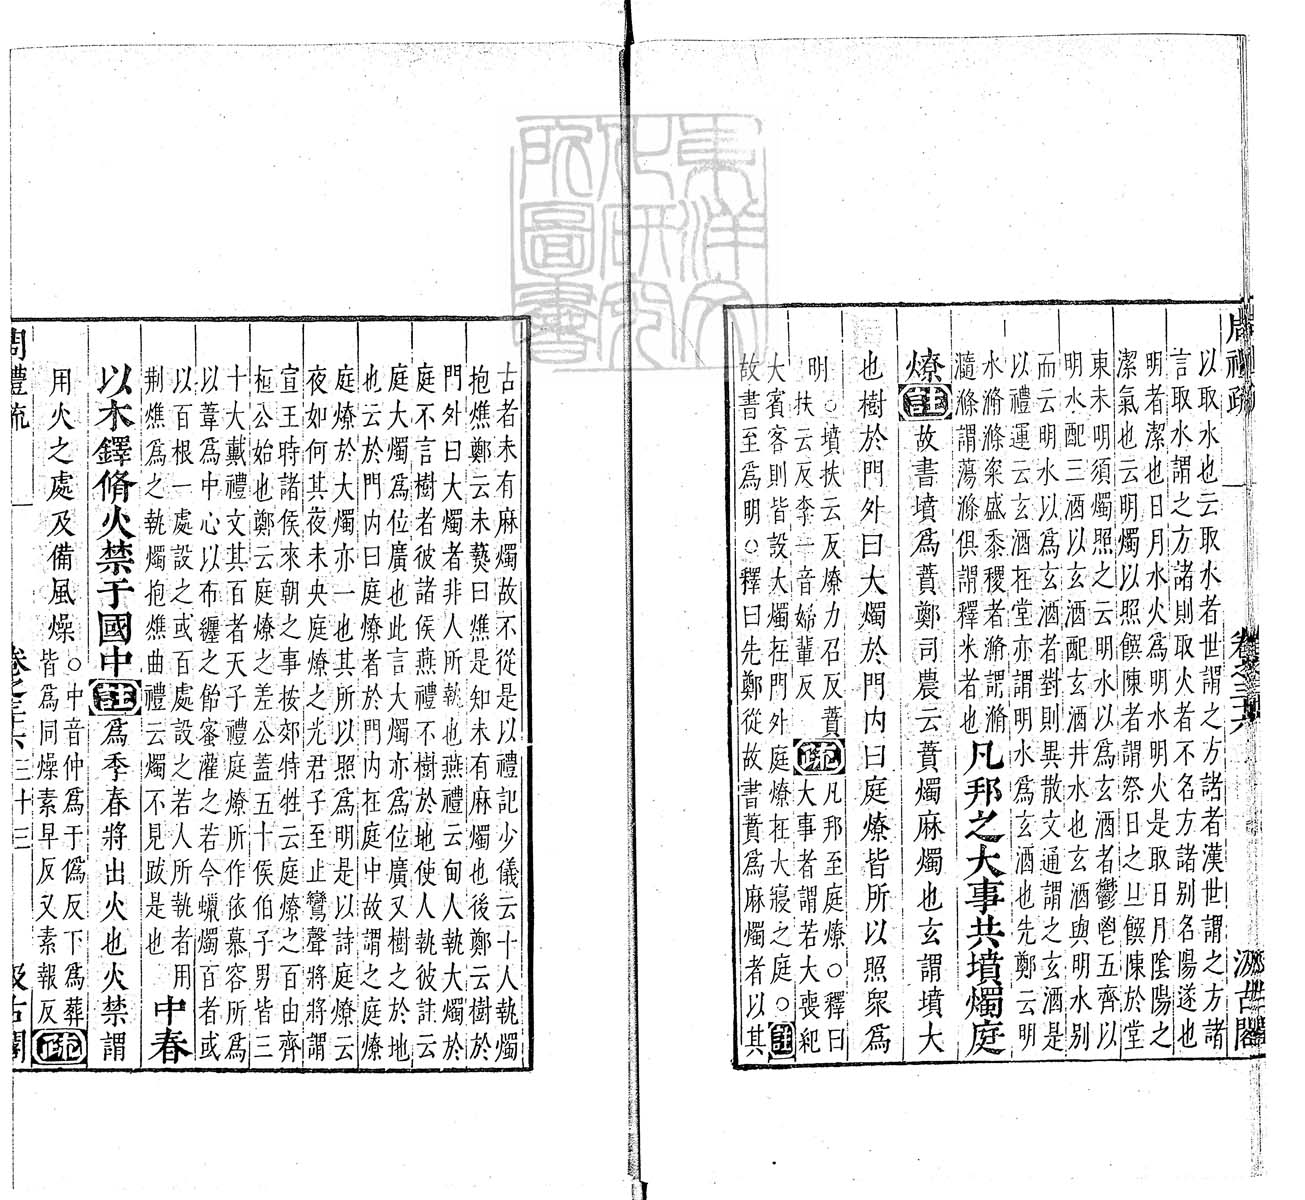 周禮疏
卷之三十六
汲古閣
以取水也云取水者世謂之方諸者漢世謂之方諸
言取水謂之方諸則取火者不名方諸別名陽遂也
明者潔也日月水火爲明水明火是取日月陰陽之
潔氣也云明燭以照饌陳者謂祭日之旦饌陳於堂
東未明須燭照之云明水以爲玄酒者鬱鬯五齊以
明水配三酒以玄酒配玄酒井水也玄酒與明水别
而云明水以爲玄酒者對則異散文通謂之玄酒是
以禮運云玄酒在堂亦謂明水爲玄酒也先鄭云明
水滫滌粢盛黍稷者滫謂滫
瀡滌謂蕩滌俱謂釋米者也凡邦之大事共墳燭庭
燎註故書墳爲蕡鄭司農云蕡燭麻燭也玄謂墳大
也樹於門外曰大燭於門内曰庭燎皆所以照衆爲
明○墳扶云反燎力召反蕡
扶云反李一音婦輩反疏凡邦至庭燎○釋曰
大事者謂若大喪紀
大賓客則皆設大燭在門外庭燎在大寢之庭○註
故書至爲明○釋曰先鄭從故書蕡爲麻燭者以其
古者未有麻燭故不從是以禮記少儀云十人執燭
抱燋鄭云未爇曰燋是知未有麻燭也後鄭云樹於
門外曰大燭者非人所執也燕禮云甸人執大燭於
庭不言樹者彼諸侯燕禮不樹於地使人執彼註云
庭大燭爲位廣也此言大燭亦爲位廣又樹之於地
也云於門内曰庭燎者於門内在庭中故謂之庭燎
庭燎於大燭亦一也其所以照爲明是以詩庭燎云
夜如何其夜未央庭燎之光君子至止鸞聲將將謂
宣王時諸侯來朝之事按郊特牲云庭燎之百由齊
桓公始也鄭云庭燎之差公蓋五十侯伯子男皆三
十大戴禮文其百者天子禮庭燎所作依慕容所爲
以葦爲中心以布纏之飴蜜灌之若今蠟燭百者或
以百根一處設之或百處設之若人所執者用
荆燋爲之執燭抱燋曲禮云燭不見跋是也中春
以木鐸脩火禁于國中註爲季春將出火也火禁謂
用火之處及備風燥○中音仲爲于僞反下爲葬
皆爲同燥素早反又素報反疏
周禮疏
卷之三六
三十三
汲古閣
東洋文化研究所圖書